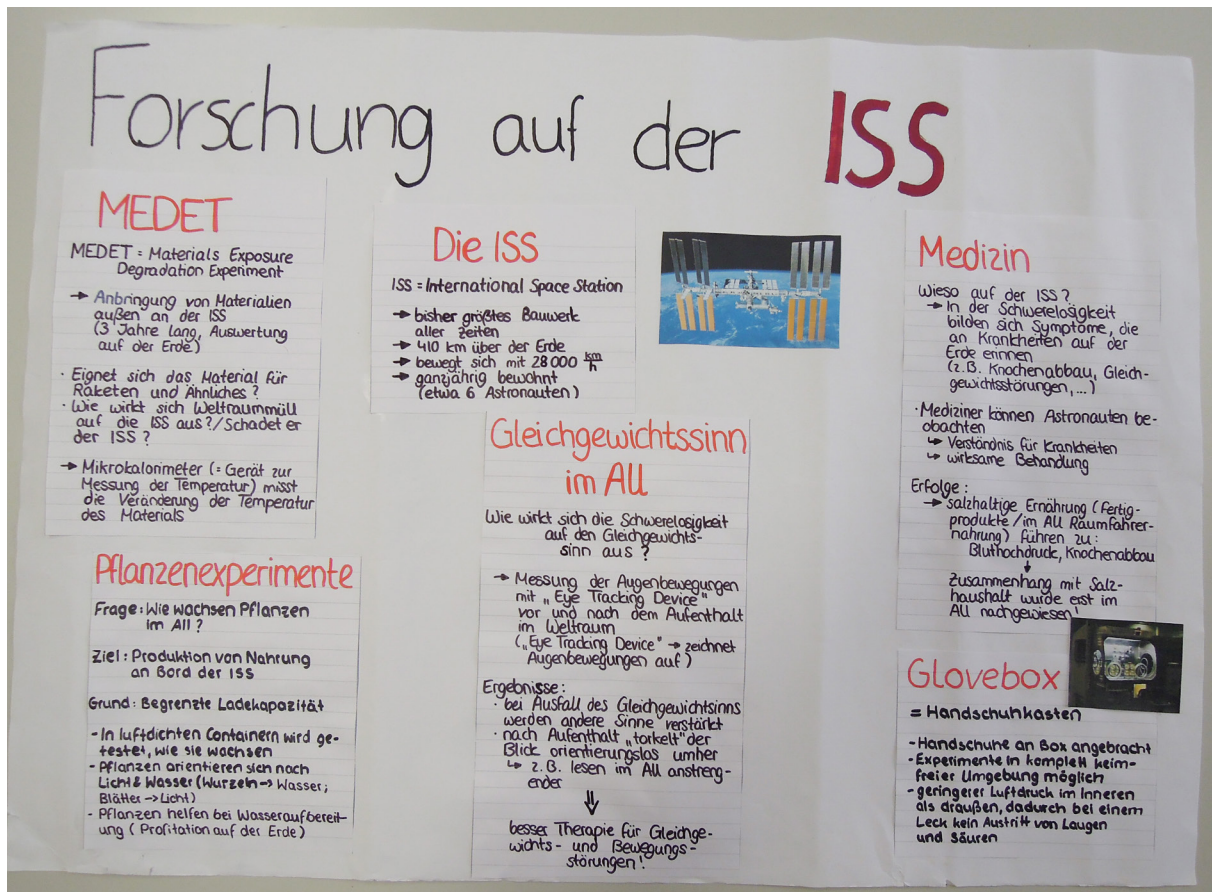 Forschung auf der ISS
MEDET
MEDET = Materials Exposure
Degradation Experiment
→ Anbringung von Materialien
außen an der ISS
(3 Jahre lang, Auswertung
auf der Erde)
· Eignet sich das Material für
Raketen und Ähnliches?
· Wie wirkt sich Weltraummüll
auf die ISS aus?/Schadet er
der ISS?
→ Mikrokalorimeter (= Gerät zur
Messung der Temperatur) misst
die Veränderung der Temperatur
des Materials
Pflanzenexperimente
Frage: Wie wachsen Pflanzen
im All?
Ziel: Produktion von Nahrung
an Bord der ISS
Grund: Begrenzte Ladekapazität
- In luftdichten Containern wird ge-
testet, wie sie wachsen
- Pflanzen orientieren sich nach
Licht & Wasser (Wurzeln → Wasser;
Blätter → Licht)
- Pflanzen helfen bei Wasseraufbereit-
ung (Profitation auf der Erde)
Die ISS
ISS = International Space Station
→ bisher größtes Bauwerk
aller Zeiten
→ 410 km über der Erde
→ bewegt sich mit 28 000 km/h
→ ganzjährig bewohnt
(etwa 6 Astronauten)
Gleichgewichtssinn
im All
Wie wirkt sich die Schwerelosigkeit
auf den Gleichgewichts-
sinn aus?
→ Messung der Augenbewegungen
mit „Eye Tracking Device"
vor und nach dem Aufenthalt
im Weltraum
(„Eye Tracking Device" → zeichnet
Augenbewegungen auf)
Ergebnisse:
· bei Ausfall des Gleichgewichtsinns
werden andere Sinne verstärkt
· nach Aufenthalt „torkelt" der
Blick orientierungslos umher
↳ z.B. lesen im All anstreng-
ender
⇓
besser Therapie für Gleichge-
wichts- und Bewegungs-
störungen!
Medizin
Wieso auf der ISS?
→ In der Schwerelosigkeit
bilden sich Symptome, die
an Krankheiten auf der
Erde erinnen
(z.B. Knochenabbau, Gleich-
gewichtsstörungen,...)
· Mediziner können Astronauten be-
obachten
↳ Verständnis für Krankheiten
↳ wirksame Behandlung
Erfolge:
→ salzhaltige Ernährung (Fertig-
produkte/im All Raumfahrer-
nahrung) führen zu:
Bluthochdruck, Knochenabbau
↓
Zusammenhang mit Salz-
haushalt wurde erst im
All nachgewiesen!
Glovebox
= Handschuhkasten
- Handschuhe an Box angebracht
- Experimente in komplett keim-
freier Umgebung möglich
- geringerer Luftdruck im Inneren
als draußen, dadurch bei einem
Leck kein Austritt von Laugen
und Säuren